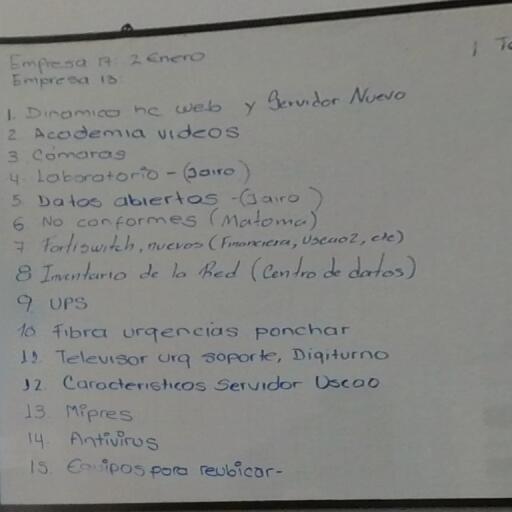 Empresa 17: 2 Enero
Empresa 13:
1. Dinamica hc web y Servidor Nuevo
2 Academia videos
3 Cámaras
4. Laboratorio - (Jairo)
5 Datos abiertos - (Jairo)
6 No conformes (Matoma)
7 Fortiswitch, nuevos (Financiera, Uscao2, etc)
8 Inventario de la Red (Centro de datos)
9 UPS
10 Fibra urgencias ponchar
11 Televisor urg soporte, Digiturno
12 Caracteristicos Servidor Uscao
13 Mipres
14. Antivirus
15. Equipos para reubicar-
1